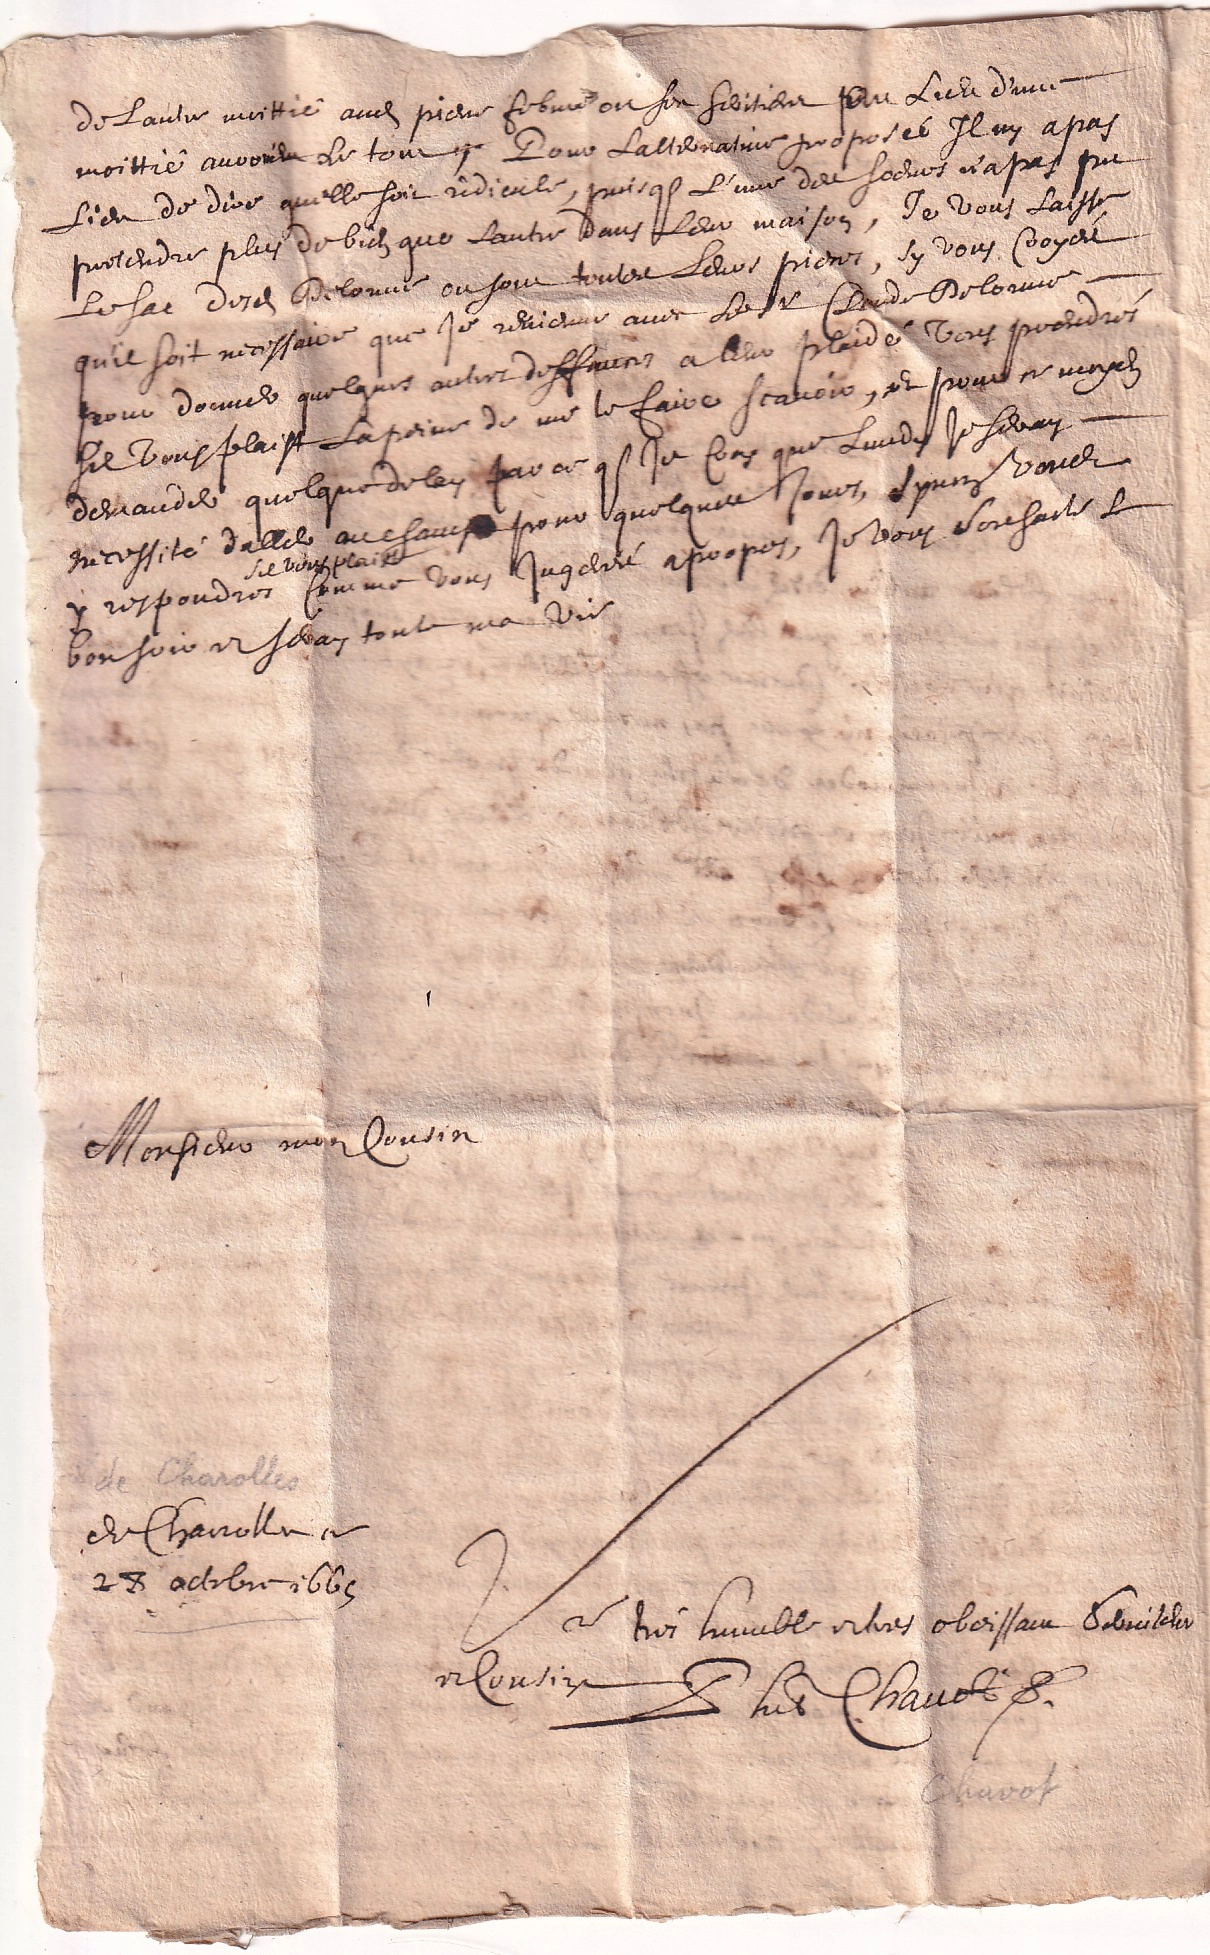 de Lautre moittié aud pierre febure ou ses heritiers au Lieu d'une
moittié au Lieu de tout Pour Lalternatiue proposée Il ny a pas
Lieu de dire quelle soit ridicule, puisq L'une des soeurs n'a pas pu
pretendre plus de bien que Lautre dans Leur maison, Je vous Laisse
Le sac desd Delorme ou sont toutes Leurs pieces, sy vous Croyés
quil soit necessaire que Je reuienne auec Led Sr Claude Delorme
pour donner quelques autres deffences a Leur plaidé vous prendrés
sil vous plaist La peine de me le faire scauoir, et pour ce moyen
demander quelque delay par ce q Je Croy que Lundy Je seray
necessité daller pour quelques Jours,
y respondres sil vous plaist Comme vous Jugerés a propos, Je vous souhaite Le
bon soir et seray toute ma vie
Monsieur mon Cousin
de Charolles
de Charolles ce
28 octobre 1665
Vre très humble et tres obeissant seruiteur
et Cousin
Chavot
Chavot